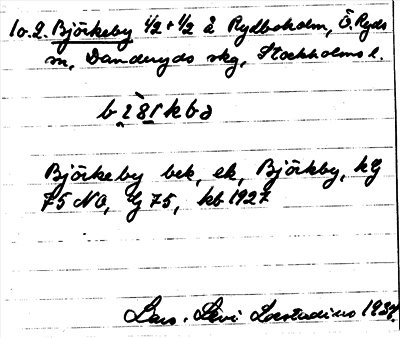 1 o. 2. Björkeby 1/2 + 1/2 å Rydboholm, Ö. Ryds
sn, Danderyds skg, Stockholms l.
Björkeby bek, ek, Björkby, kG
75 NO, G 75, kb 1927
Lars-Levi Læstadius 1937.